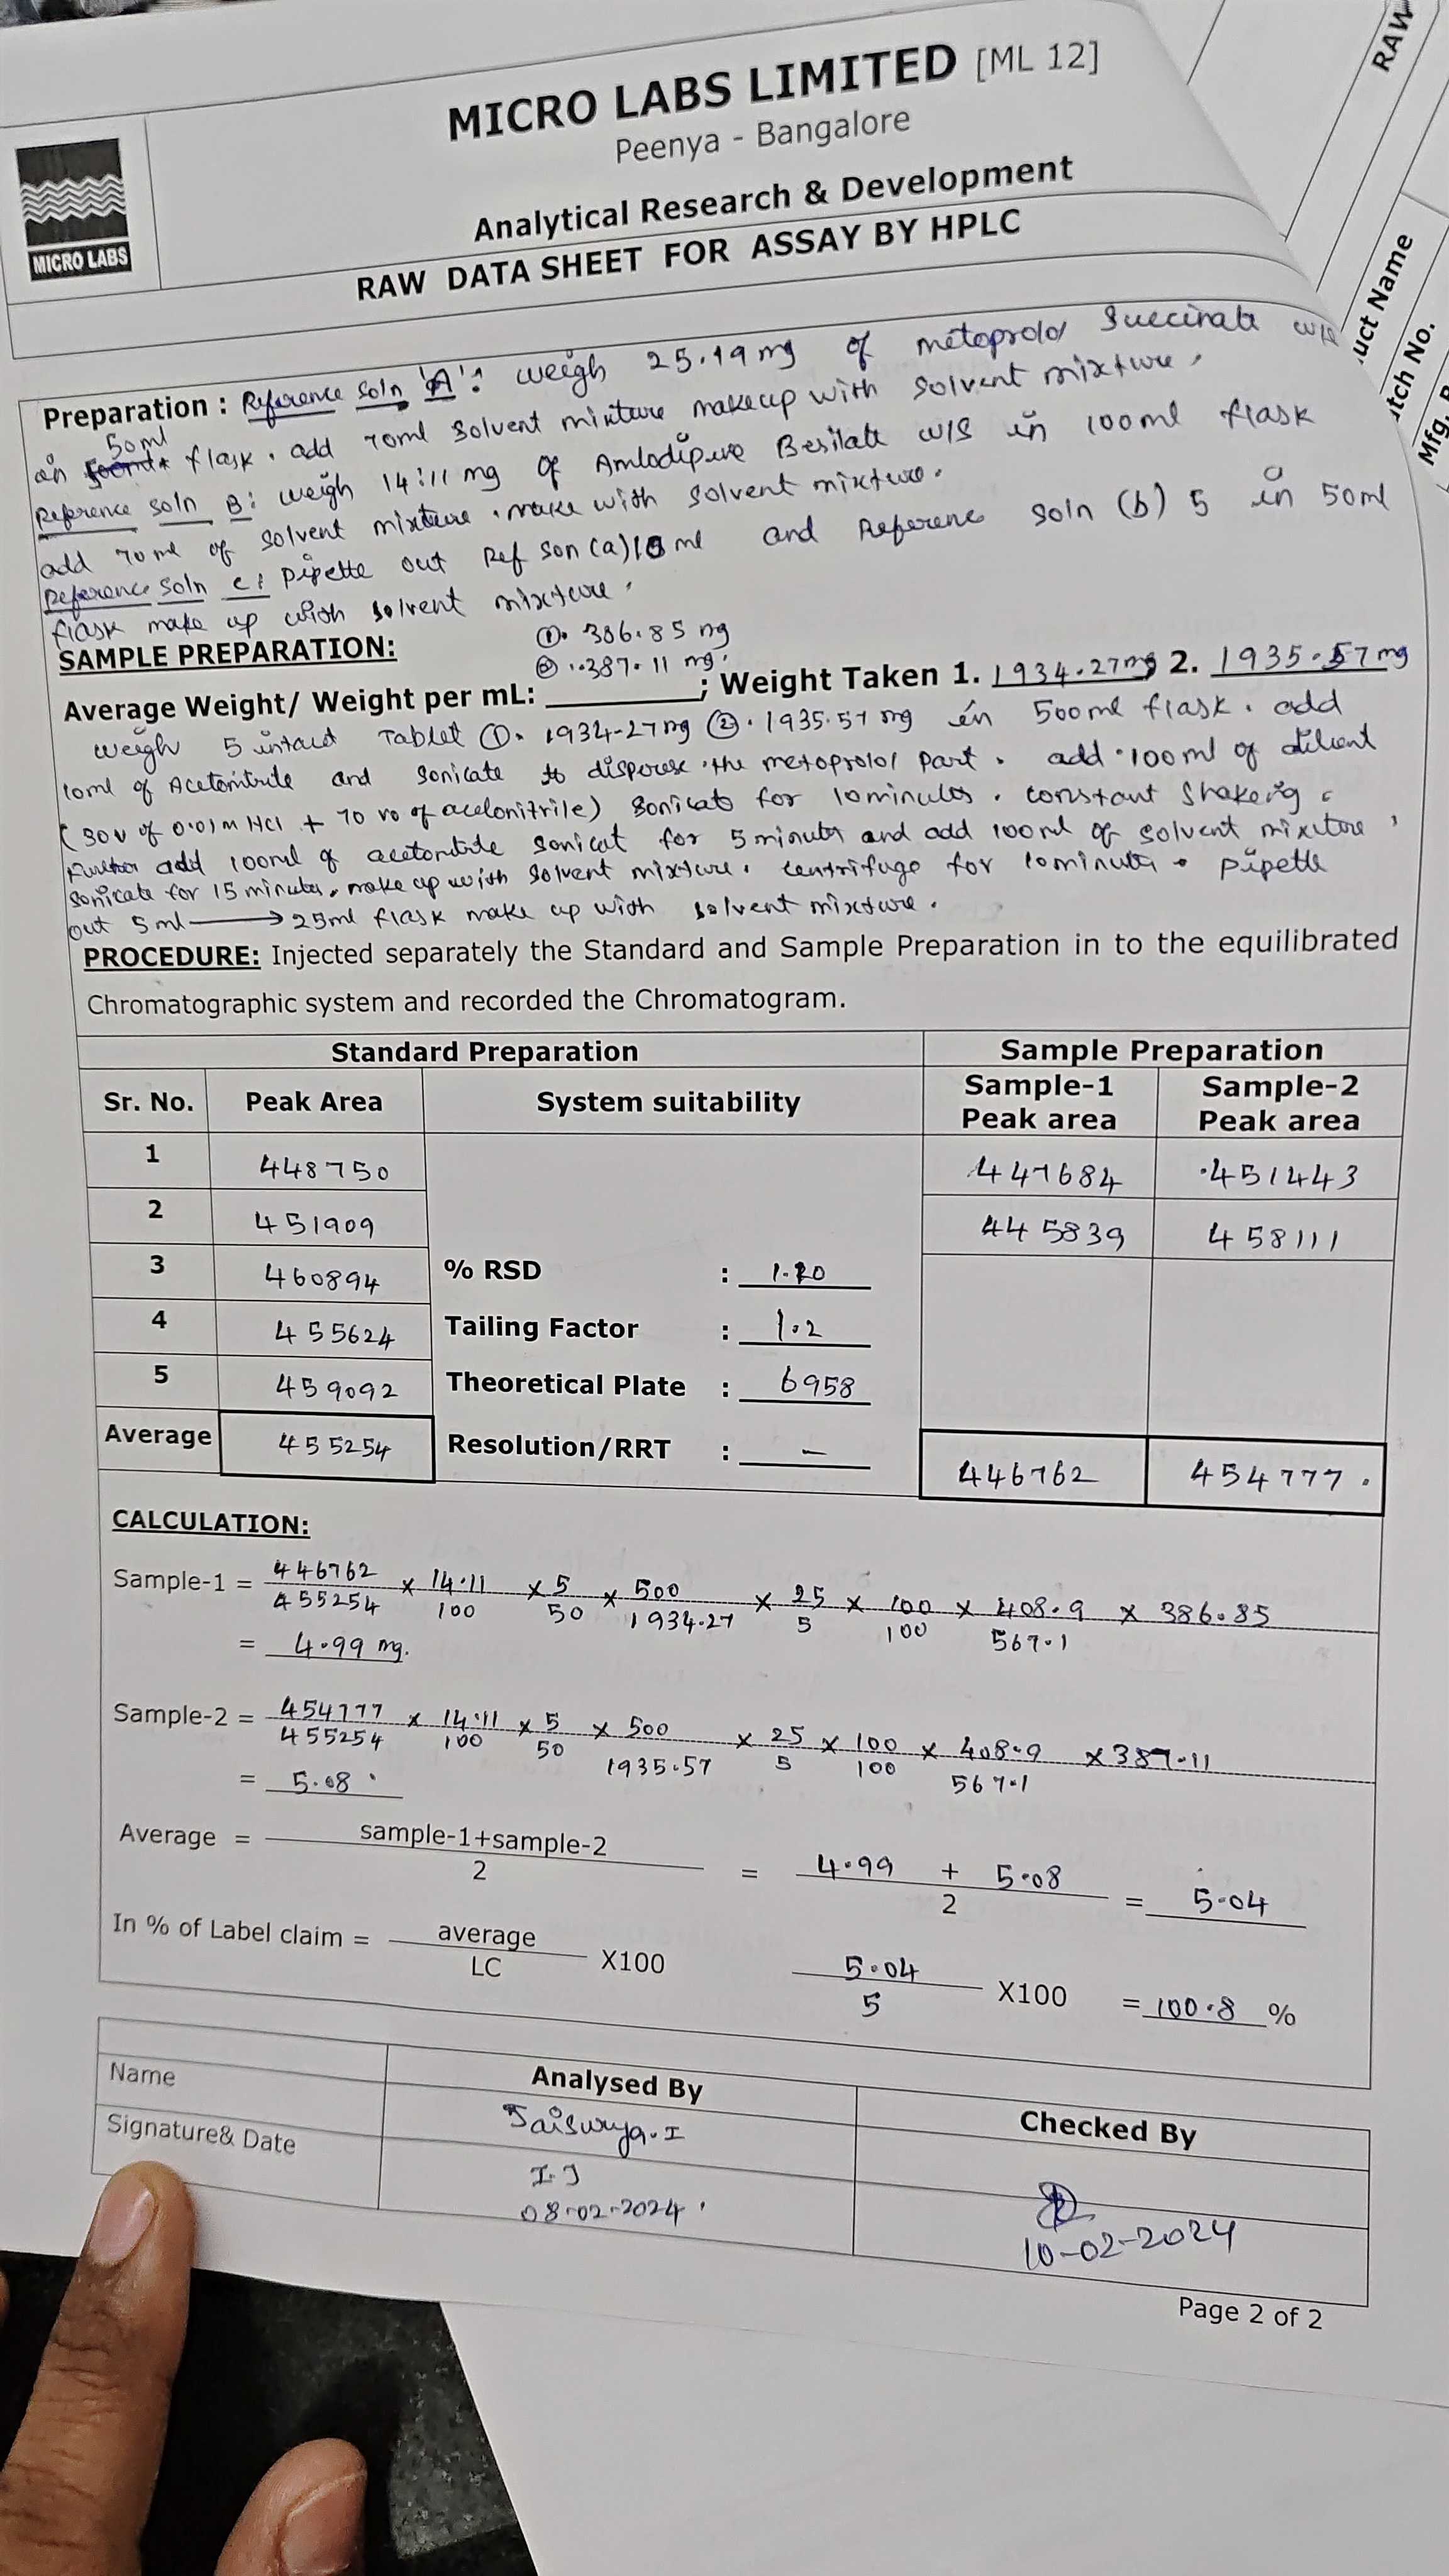 MICRO LABS LIMITED [ML 12]
Peenya - Bangalore
MICRO LABS
Analytical Research & Development
RAW DATA SHEET FOR ASSAY BY HPLC
RAW
uct Name
tch No.
Mfg.
Preparation : Reference soln 'A': weigh 25.19 mg of metoprolol Succinate w/s
in 50ml flask. add 70ml solvent mixture makeup with solvent mixture.
Reference soln B: weigh 14.11 mg of Amlodipine Besilate w/s in 100ml flask
add 70 ml of solvent mixture. make with solvent mixture.
Reference soln C: pipette out Ref son (a) ml and Reference soln (b) 5 in a 50ml
flask make up with solvent mixture.
SAMPLE PREPARATION:
①. 386.85 mg
②. 387.11 mg.
Average Weight/ Weight per mL: ________; Weight Taken 1. 1934.27mg 2. 1935.57 mg
weigh 5 intact Tablet ①. 1934.27 mg ②. 1935.57 mg in 500ml flask. add
10ml of Acetonitrile and sonicate to disperse the metoprolol part. add 100 ml of diluent
(30v of 0.01m HCl + 70 vo of acelonitrile) Sonicate for 10minutes. constant shakeing.
Further add 100ml of acetonitrile sonicat for 5 minutes and add 100ml of solvent mixture,
sonicate for 15 minutes, make up with solvent mixture. centrifuge for 10minutes. pipette
out 5ml → 25ml flask make up with solvent mixture.
PROCEDURE: Injected separately the Standard and Sample Preparation in to the equilibrated
Chromatographic system and recorded the Chromatogram.
Standard Preparation Sample Preparation
Sr. No. Peak Area System suitability Sample-1 Peak area Sample-2 Peak area
1 448750 447684 451443
2 451909 445839 458111
3 460894 % RSD : 1.20
4 455624 Tailing Factor : 1.2
5 459092 Theoretical Plate : 6958
Average 455254 Resolution/RRT : — 446762 454777.
CALCULATION:
Sample-1 = 446762 x 14.11 x 5 x 500 x 25 x 100 x 408.9 x 386.85
455254 100 50 1934.27 5 100 567.1
= 4.99 mg.
Sample-2 = 454777 x 14.11 x 5 x 500 x 25 x 100 x 408.9 x 387.11
455254 100 50 1935.57 5 100 567.1
= 5.08
Average = sample-1+sample-2 = 4.99 + 5.08 = 5.04
2 2
In % of Label claim = average X100 5.04 X100 = 100.8 %
LC 5
Analysed By Checked By
Name
Signature& Date
I.J
08-02-2024
10-02-2024
Page 2 of 2